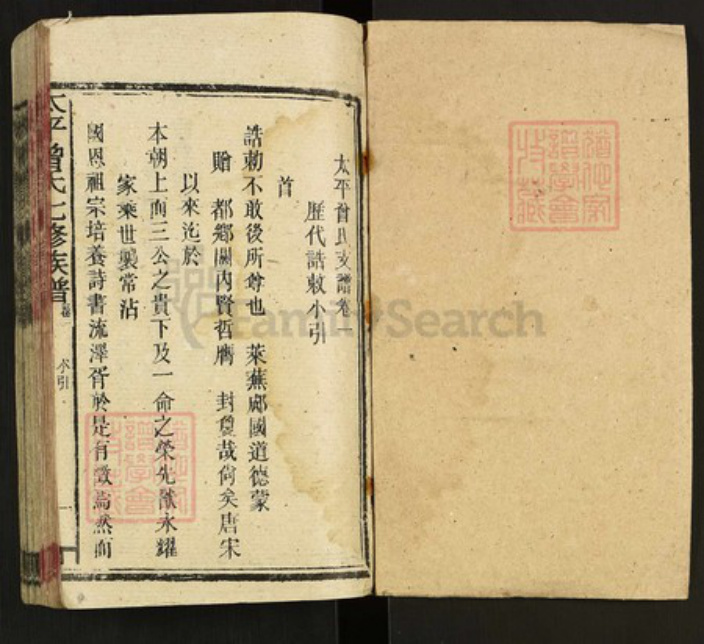 太平曾氏支譜卷一
歷代誥敕小引
首
誥勅不敢後所尊也 萊蕪郕國道德蒙
贈 都鄉關內賢哲膺 封敻哉尙矣唐宋
以來迄於
本朝上而三公之貴下及一命之榮先猷永耀
家乘世襲常沾
國恩祖宗培養詩書流澤胥於是有徵焉然而
太平曾氏七修族譜 卷一 小引 一
FamilySearch